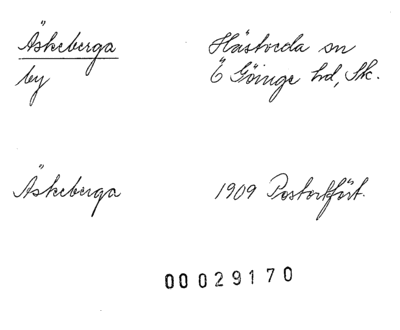 Äskeberga Hästveda sn
by Ö Göinge hd, Sk.
Äskeberga 1909 Postortfört.
00029170